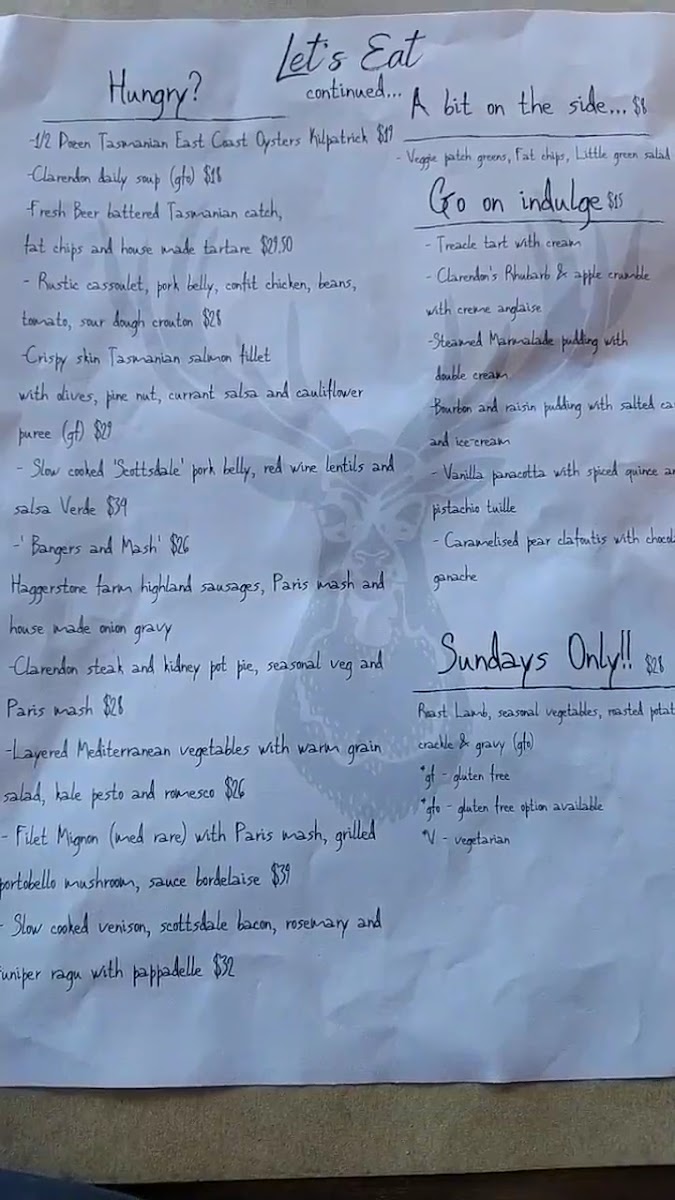 Let's Eat
continued...
Hungry?
-1/2 Dozen Tasmanian East Coast Oysters Kilpatrick $19
-Clarendon daily soup (gfo) $18
-Fresh Beer battered Tasmanian catch,
fat chips and house made tartare $29.50
- Rustic cassoulet, pork belly, confit chicken, beans,
tomato, sour dough crouton $28
-Crispy skin Tasmanian salmon fillet
with olives, pine nut, currant salsa and cauliflower
puree (gf) $29
- Slow cooked 'Scottsdale' pork belly, red wine lentils and
salsa Verde $39
-' Bangers and Mash' $26
Haggerstone farm highland sausages, Paris mash and
house made onion gravy
-Clarendon steak and kidney pot pie, seasonal veg and
Paris mash $28
-Layered Mediterranean vegetables with warm grain
salad, kale pesto and romesco $26
- Filet Mignon (med rare) with Paris mash, grilled
portobello mushroom, sauce bordelaise $39
- Slow cooked venison, scottsdale bacon, rosemary and
juniper ragu with pappadelle $32
A bit on the side... $8
- Veggie patch greens, Fat chips, Little green salad
Go on indulge $15
- Treacle tart with cream
- Clarendon's Rhubarb & apple crumble
with creme anglaise
-Steamed Marmalade pudding with
double cream.
-Bourbon and raisin pudding with salted ca
and ice-cream
- Vanilla panacotta with spiced quince a
pistachio tuille
- Caramelised pear clafoutis with chocol
ganache
Sundays Only!! $28
Roast Lamb, seasonal vegetables, roasted potat
crackle & gravy (gfo)
*gf - gluten free
*gfo - gluten free option available
*V - vegetarian